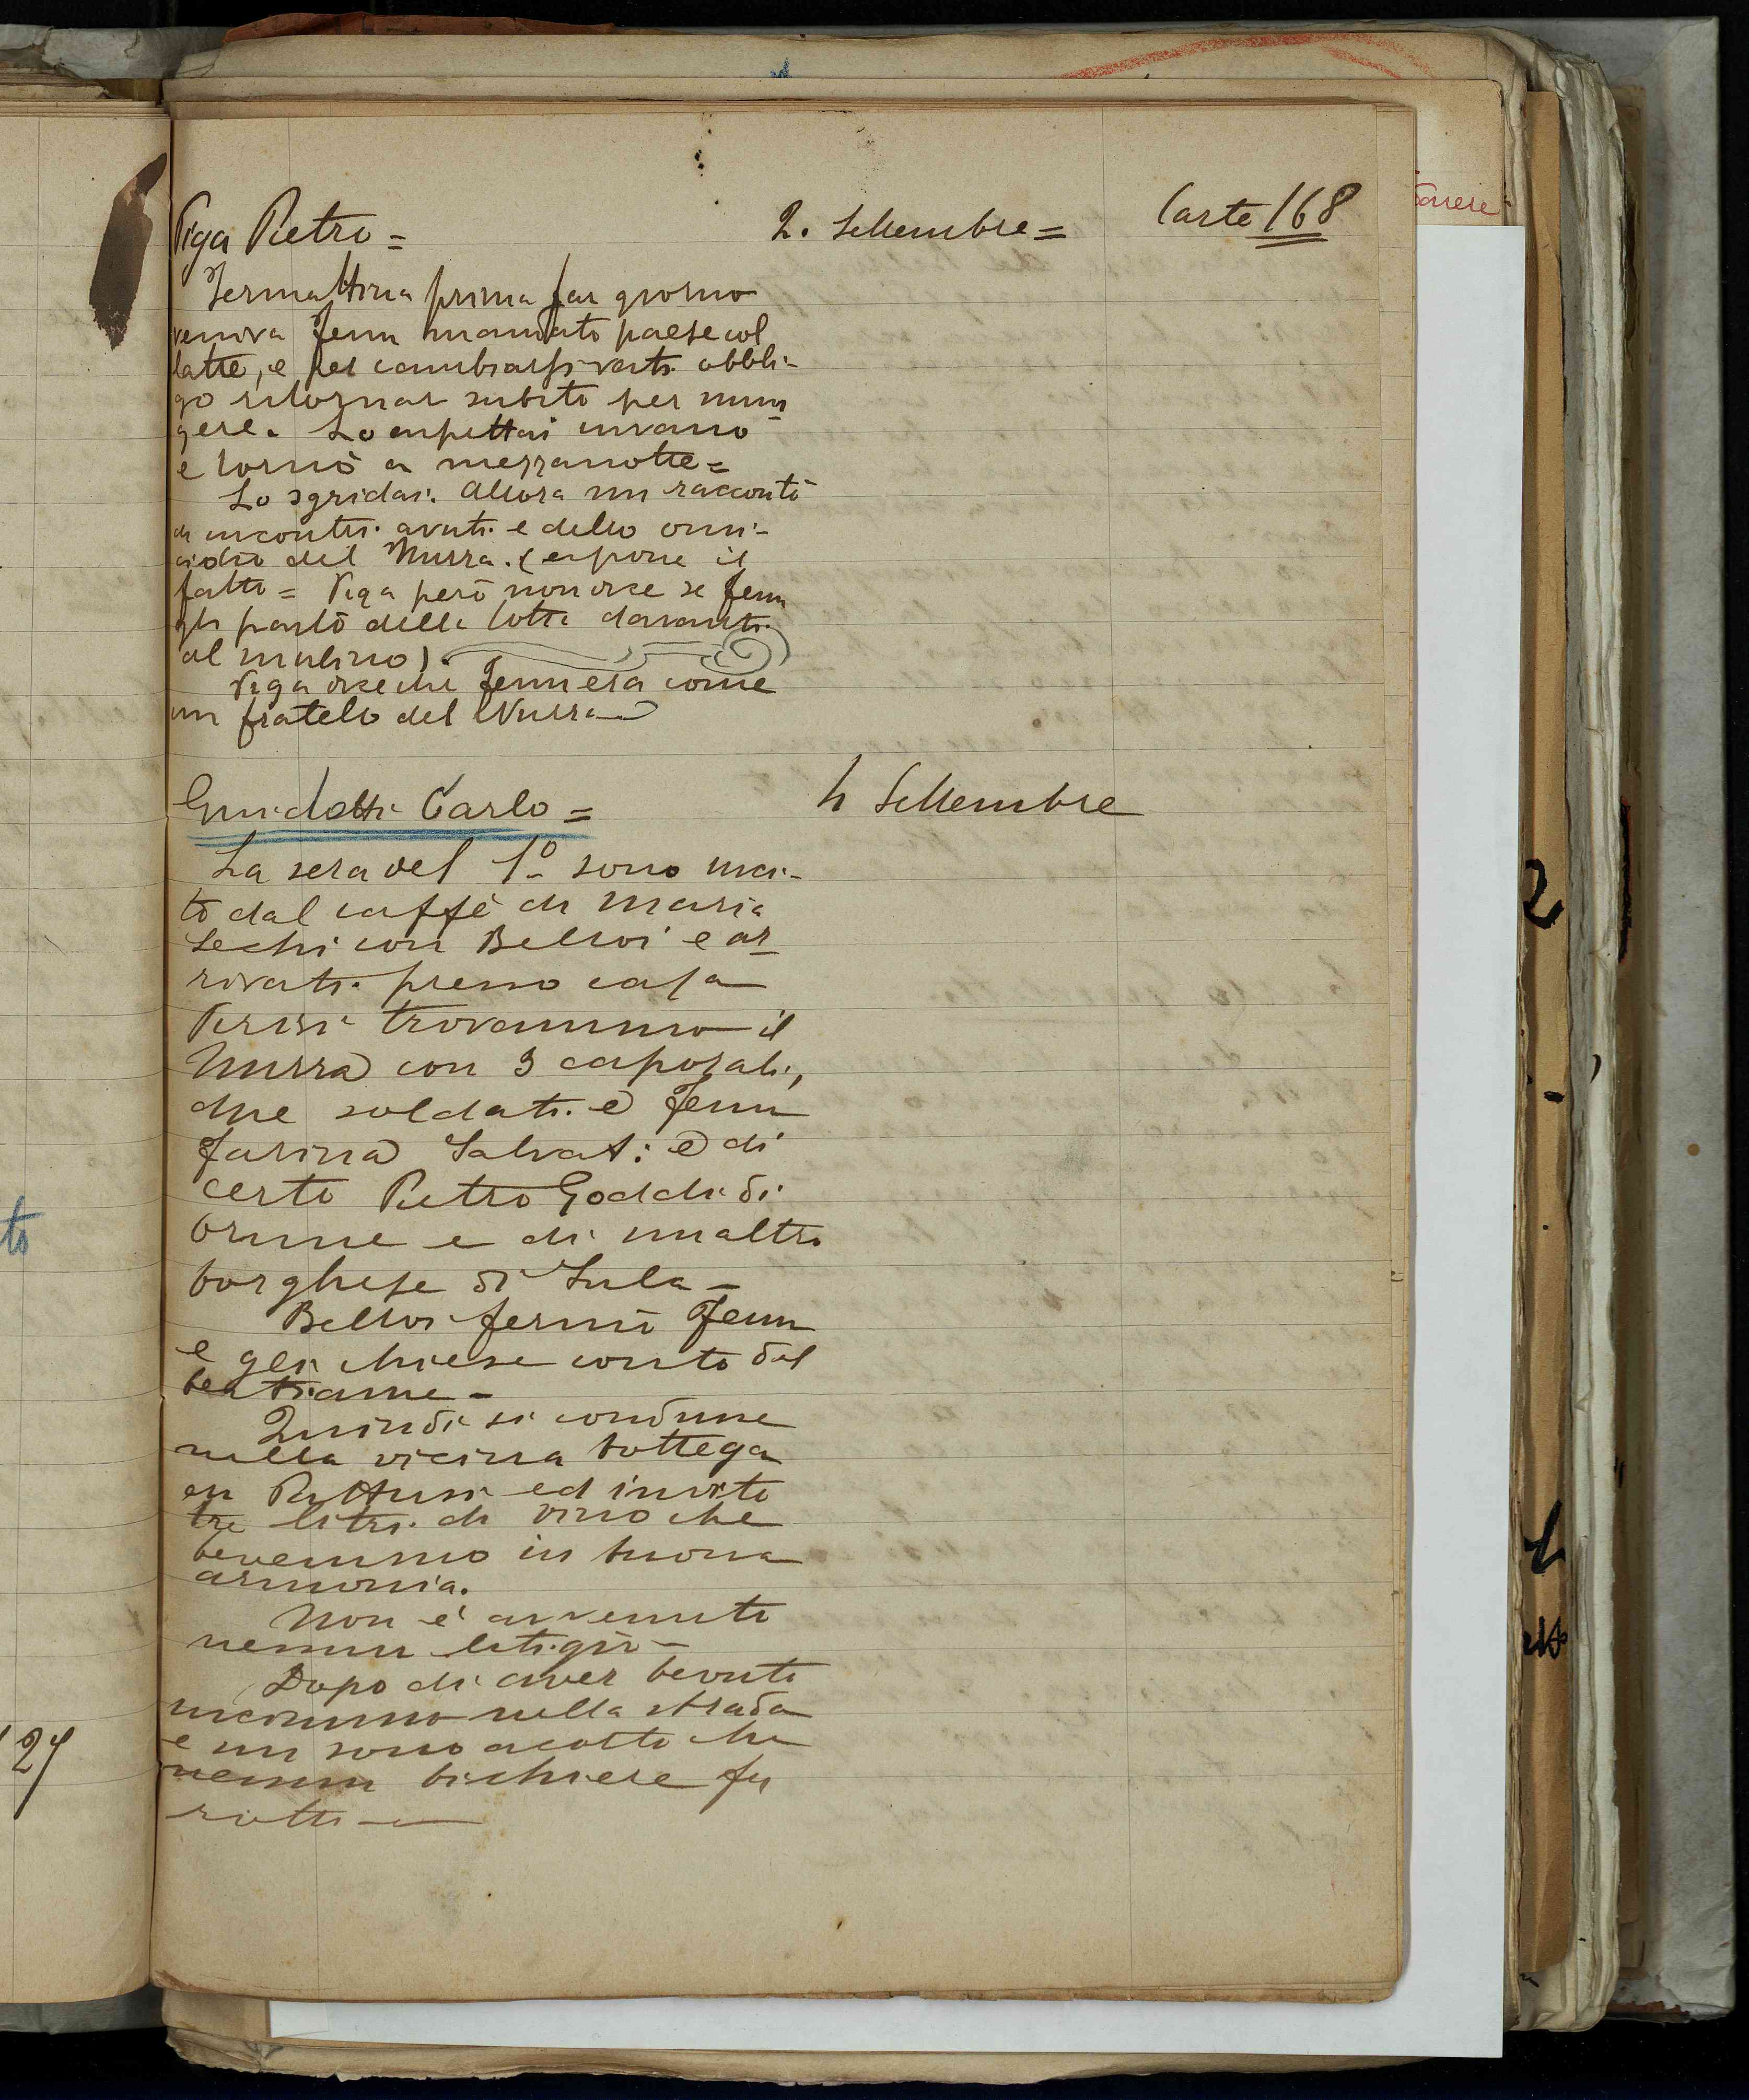 Piga Pietro = 2. Settembre = Carte 168
Iermattina prima far giorno
veniva Fenu mandato paese col
latte, e per cambiarsi vesti. obbli-
go ritornar subito per mun
gere. Lo aspettai invano
e tornò a mezzanotte =
Lo sgridai. Allora mi raccontò
di incontri avuti e dello omi-
cidio del Nurra. (espone il
fatto = Piga però non dice se Fenu
gli parlò della lotta davanti
al mulino).
Piga dice che Fenu era come
un fratello del Nurra
Guidotti Carlo = 4 Settembre
La sera del 1º sono usci-
to dal caffè di Maria
Sechi con Belloi e ar
rivati presso casa
Pirisi trovammo il
Nurra con 3 caporali,
due soldati e Fenu
Farina Salvat: e di
certo Pietro Goddi di
Orune e di un altro
borghese di Lula -
Belloi fermò Fenu
e gli chiese conto del
bestiame -
Quindi si condusse
nella vicina bottega
di Pattusi ed invitò
tre litri di vino che
bevemmo in buona
armonia.
Non è avvenuto
nessun litigio -
Dopo di aver bevuto
uscimmo nella strada
e mi sono accorto che
nessun bicchiere fu
rotto
to
127
2